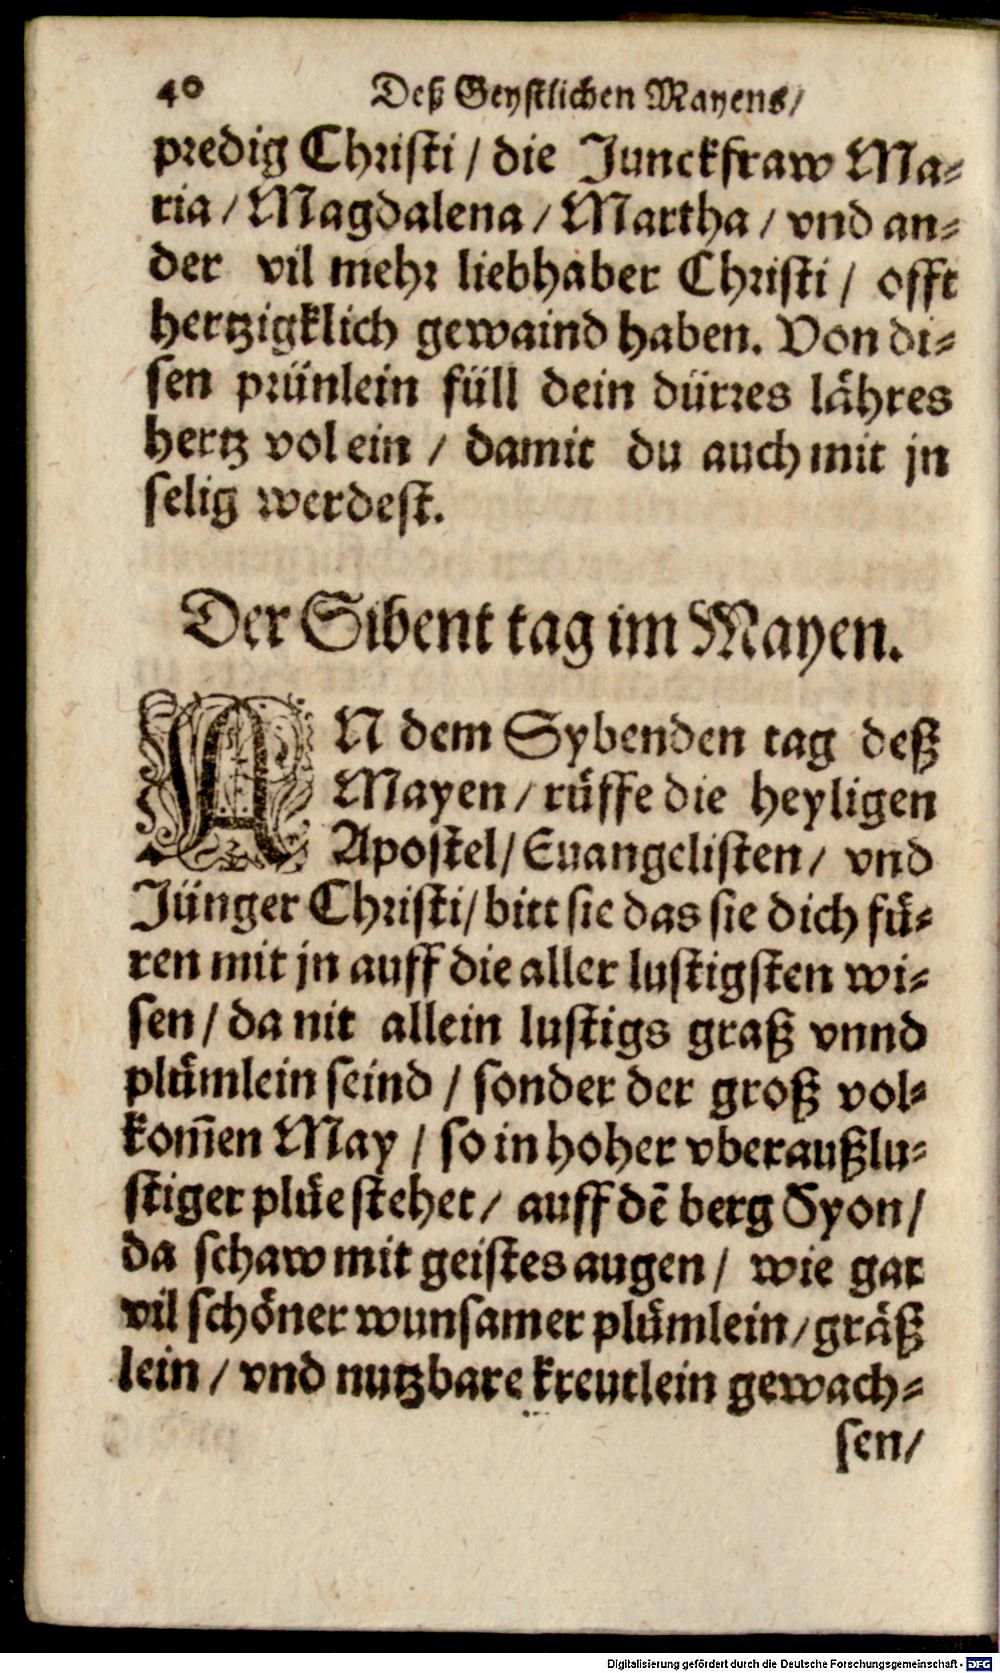 40 Deß Geystlichen Mayens/
predig Christi / die Junckfraw Ma-
ria / Magdalena / Martha / vnd an-
der vil mehr liebhaber Christi / offt
hertzigklich gewaind haben. Von di-
sen prünlein füll dein dürres lähres
hertz vol ein / damit du auch mit jn
selig werdest.
Der Sibent tag im Mayen.
AN dem Sybenden tag deß
Mayen / rüffe die heyligen
Apostel / Euangelisten / vnd
Jünger Christi / bitt sie das sie dich fü-
ren mit jn auff die aller lustigsten wi-
sen / da nit allein lustigs graß vnnd
plümlein seind / sonder der groß vol-
kom̃en May / so in hoher vberaußlu-
stiger plüe stehet / auff dẽ berg Syon /
da schaw mit geistes augen / wie gar
vil schöner wunsamer plümlein / gräß
lein / vnd nutzbare kreutlein gewach-
sen /
Digitalisierung gefördert durch die Deutsche Forschungsgemeinschaft - DFG